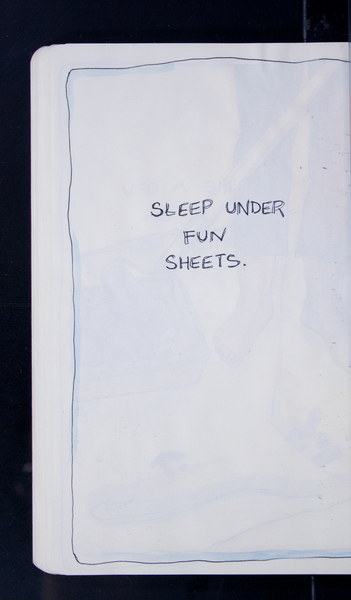 SLEEP UNDER
FUN
SHEETS.